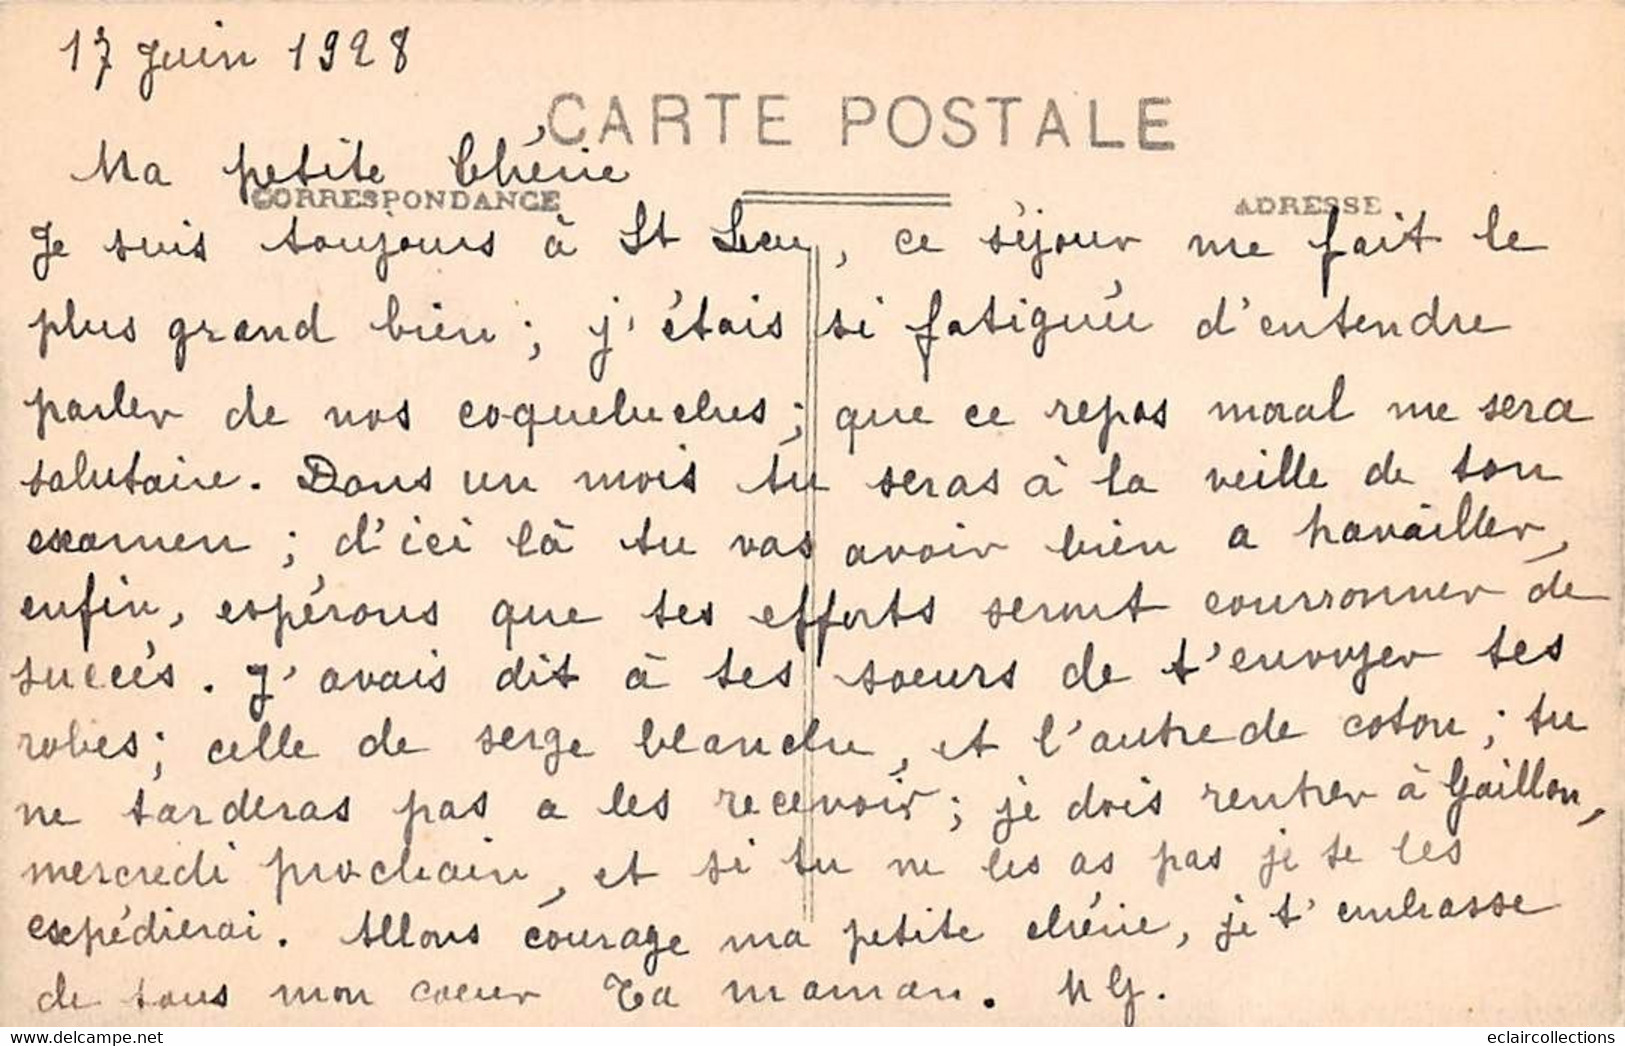 17 Juin 1928
CARTE POSTALE
Ma petite Chérie
CORRESPONDANCE
ADRESSE
Je suis toujours à St Leu, ce séjour me fait le
plus grand bien; j'étais si fatiguée d'entendre
parler de nos coqueluches; que ce repos moral me sera
salutaire. Dans un mois tu seras à la veille de ton
examen; d'ici là tu vas avoir bien a travailler,
enfin, espérons que tes efforts seront courronner de
succés. J'avais dit à tes soeurs de t'envoyer tes
robes; celle de serge blanche, et l'autre de coton; tu
ne tarderas pas a les recevoir; je dois rentrer à Gaillon,
mercredi prochain, et si tu ne les as pas je te les
expédierai. Allons courage ma petite chérie, je t'embrasse
de tous mon coeur Ta maman. M G.
eclaircollections